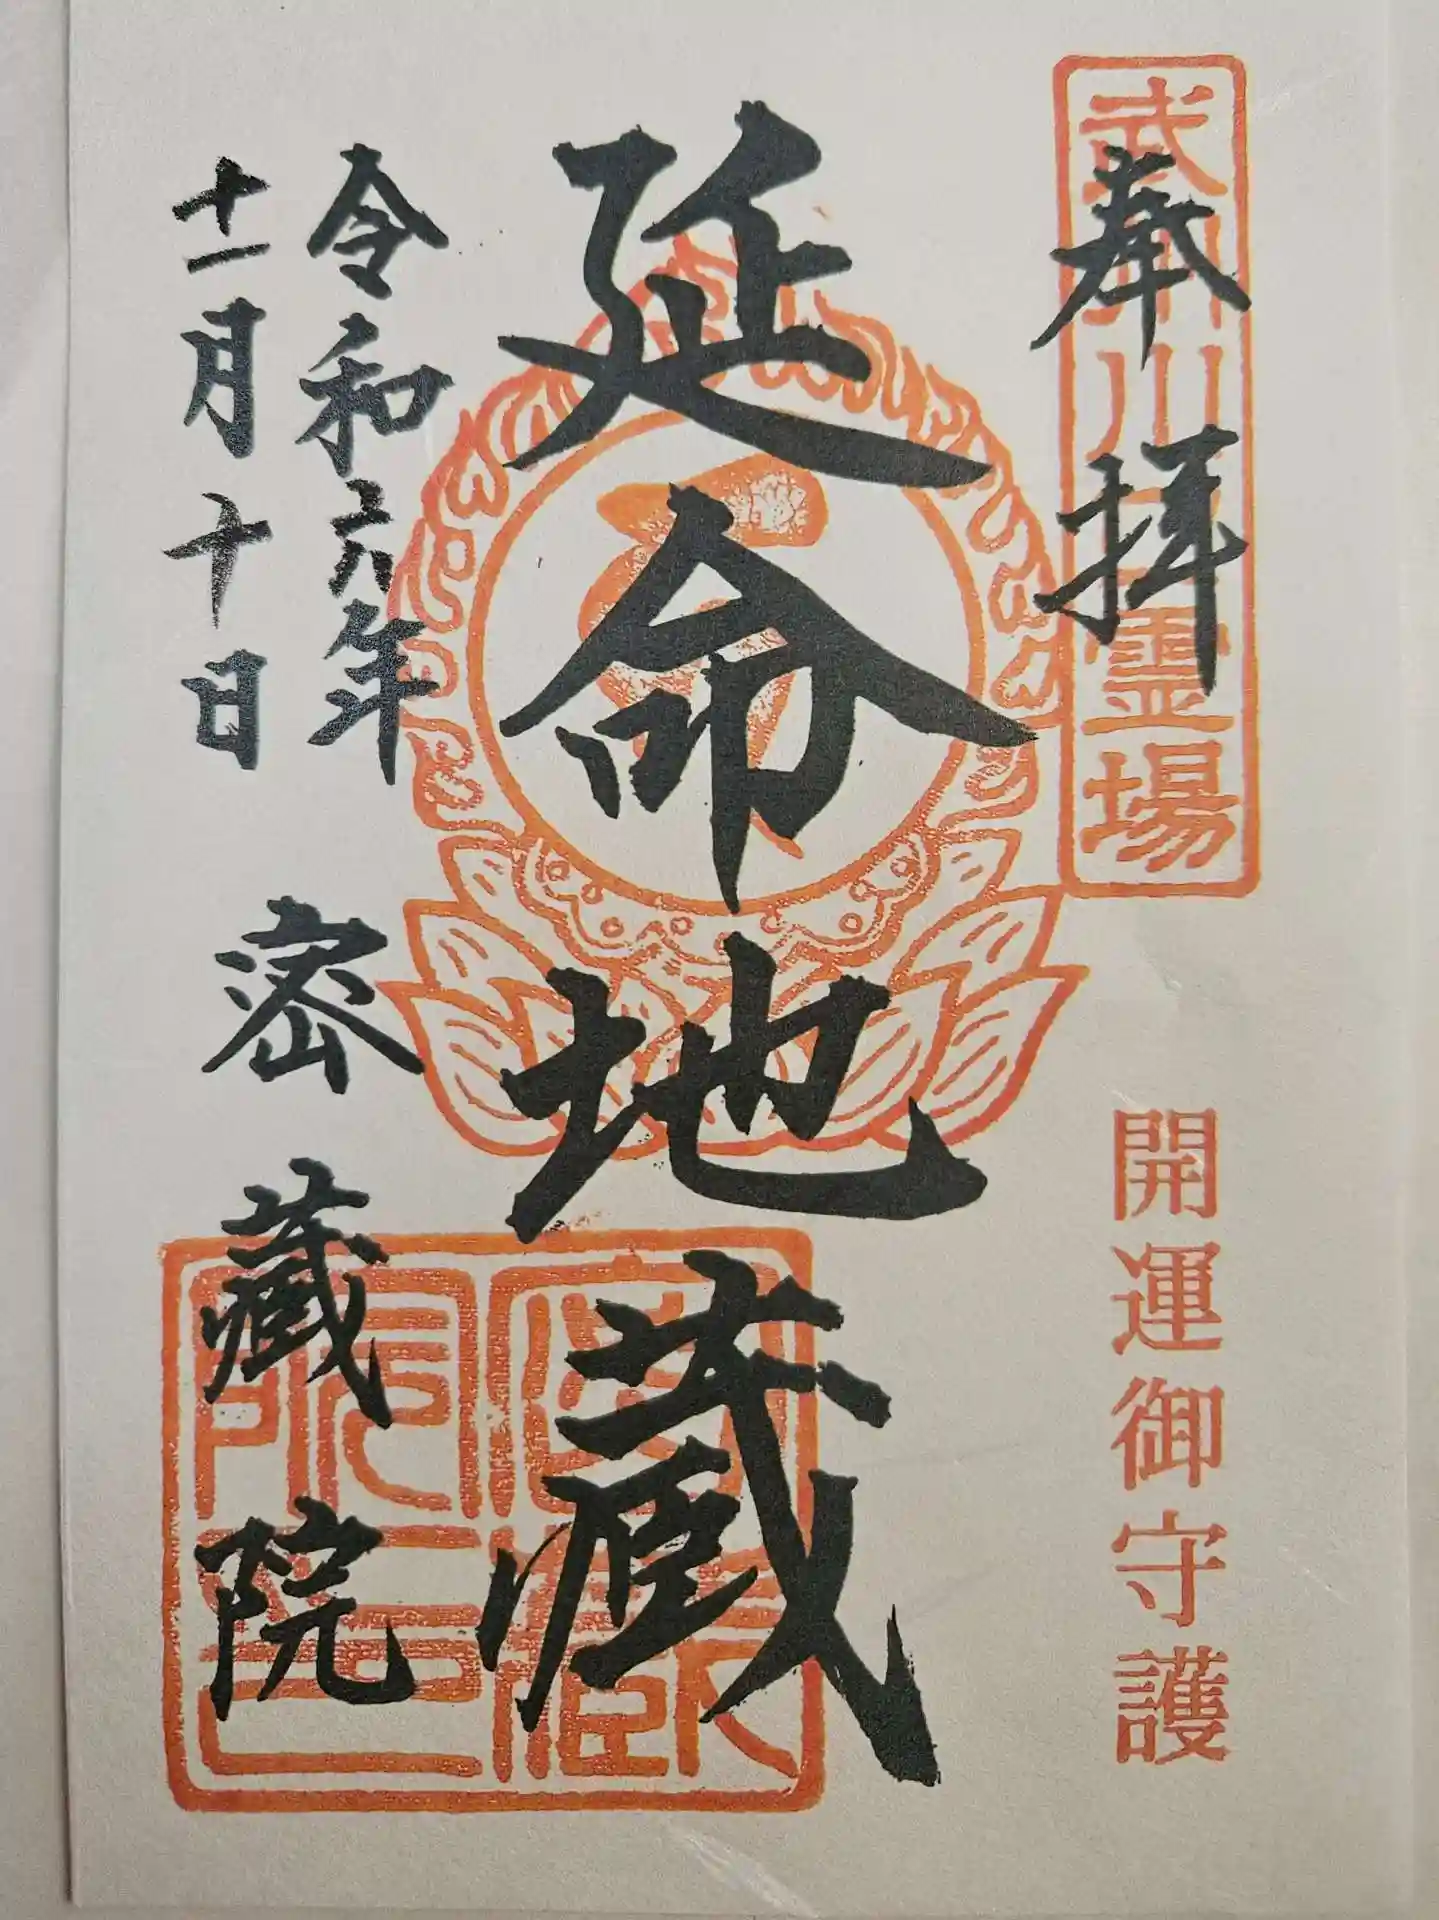 武州川口霊場
奉拝
開運御守護
延命地蔵
令和六年
十一月十日
密蔵院